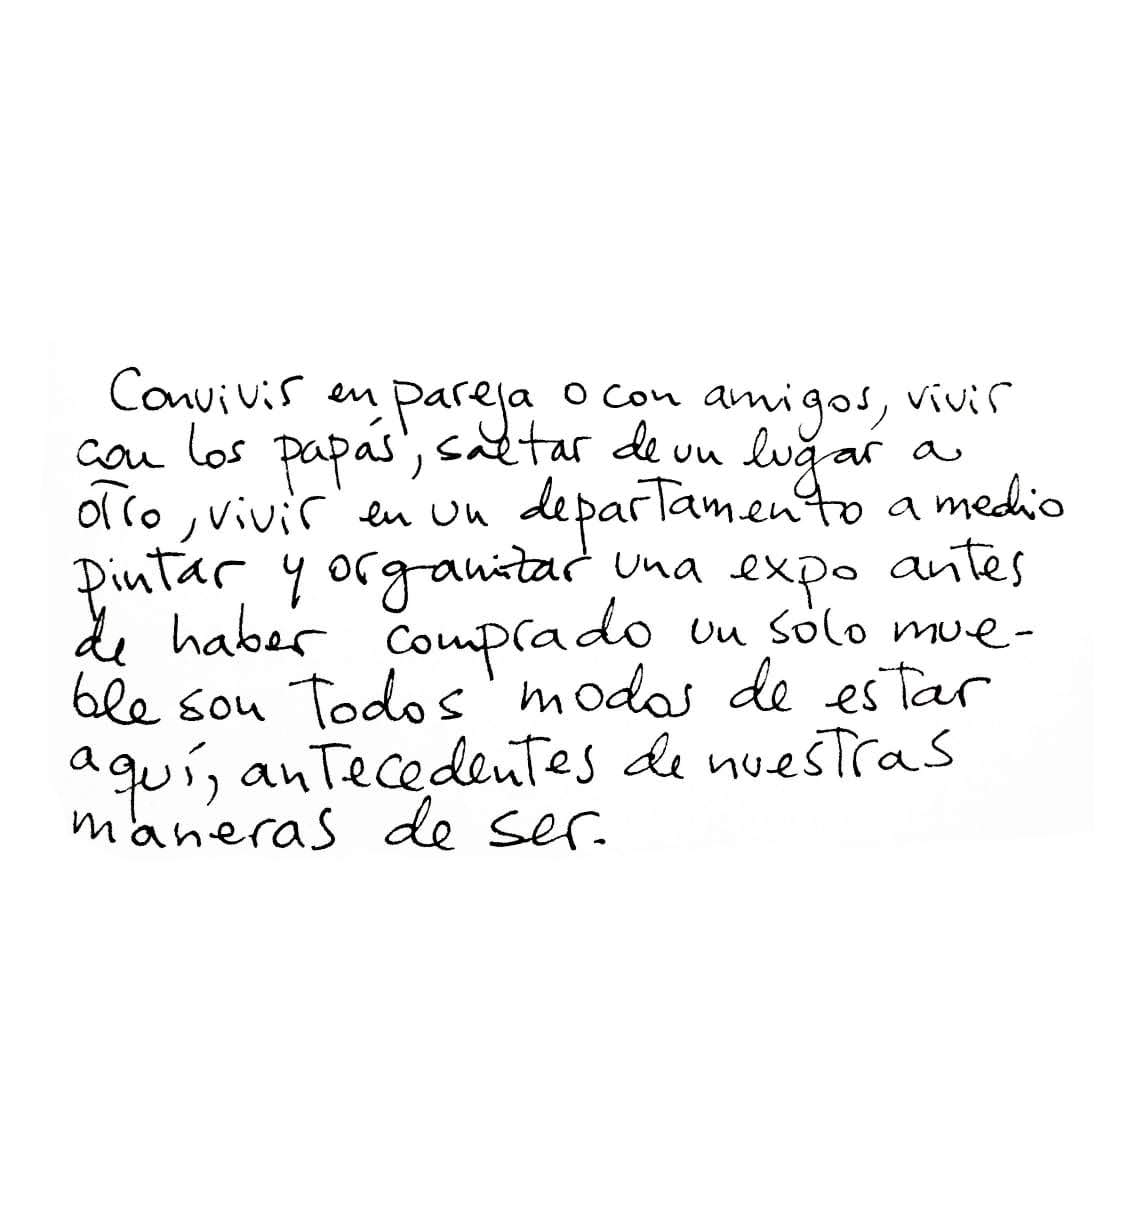 Convivir en pareja o con amigos, vivir
con los papás, saltar de un lugar a
otro, vivir en un departamento a medio
pintar y organizar una expo antes
de haber comprado un solo mue-
ble son todos modos de estar
aquí, antecedentes de nuestras
maneras de ser.